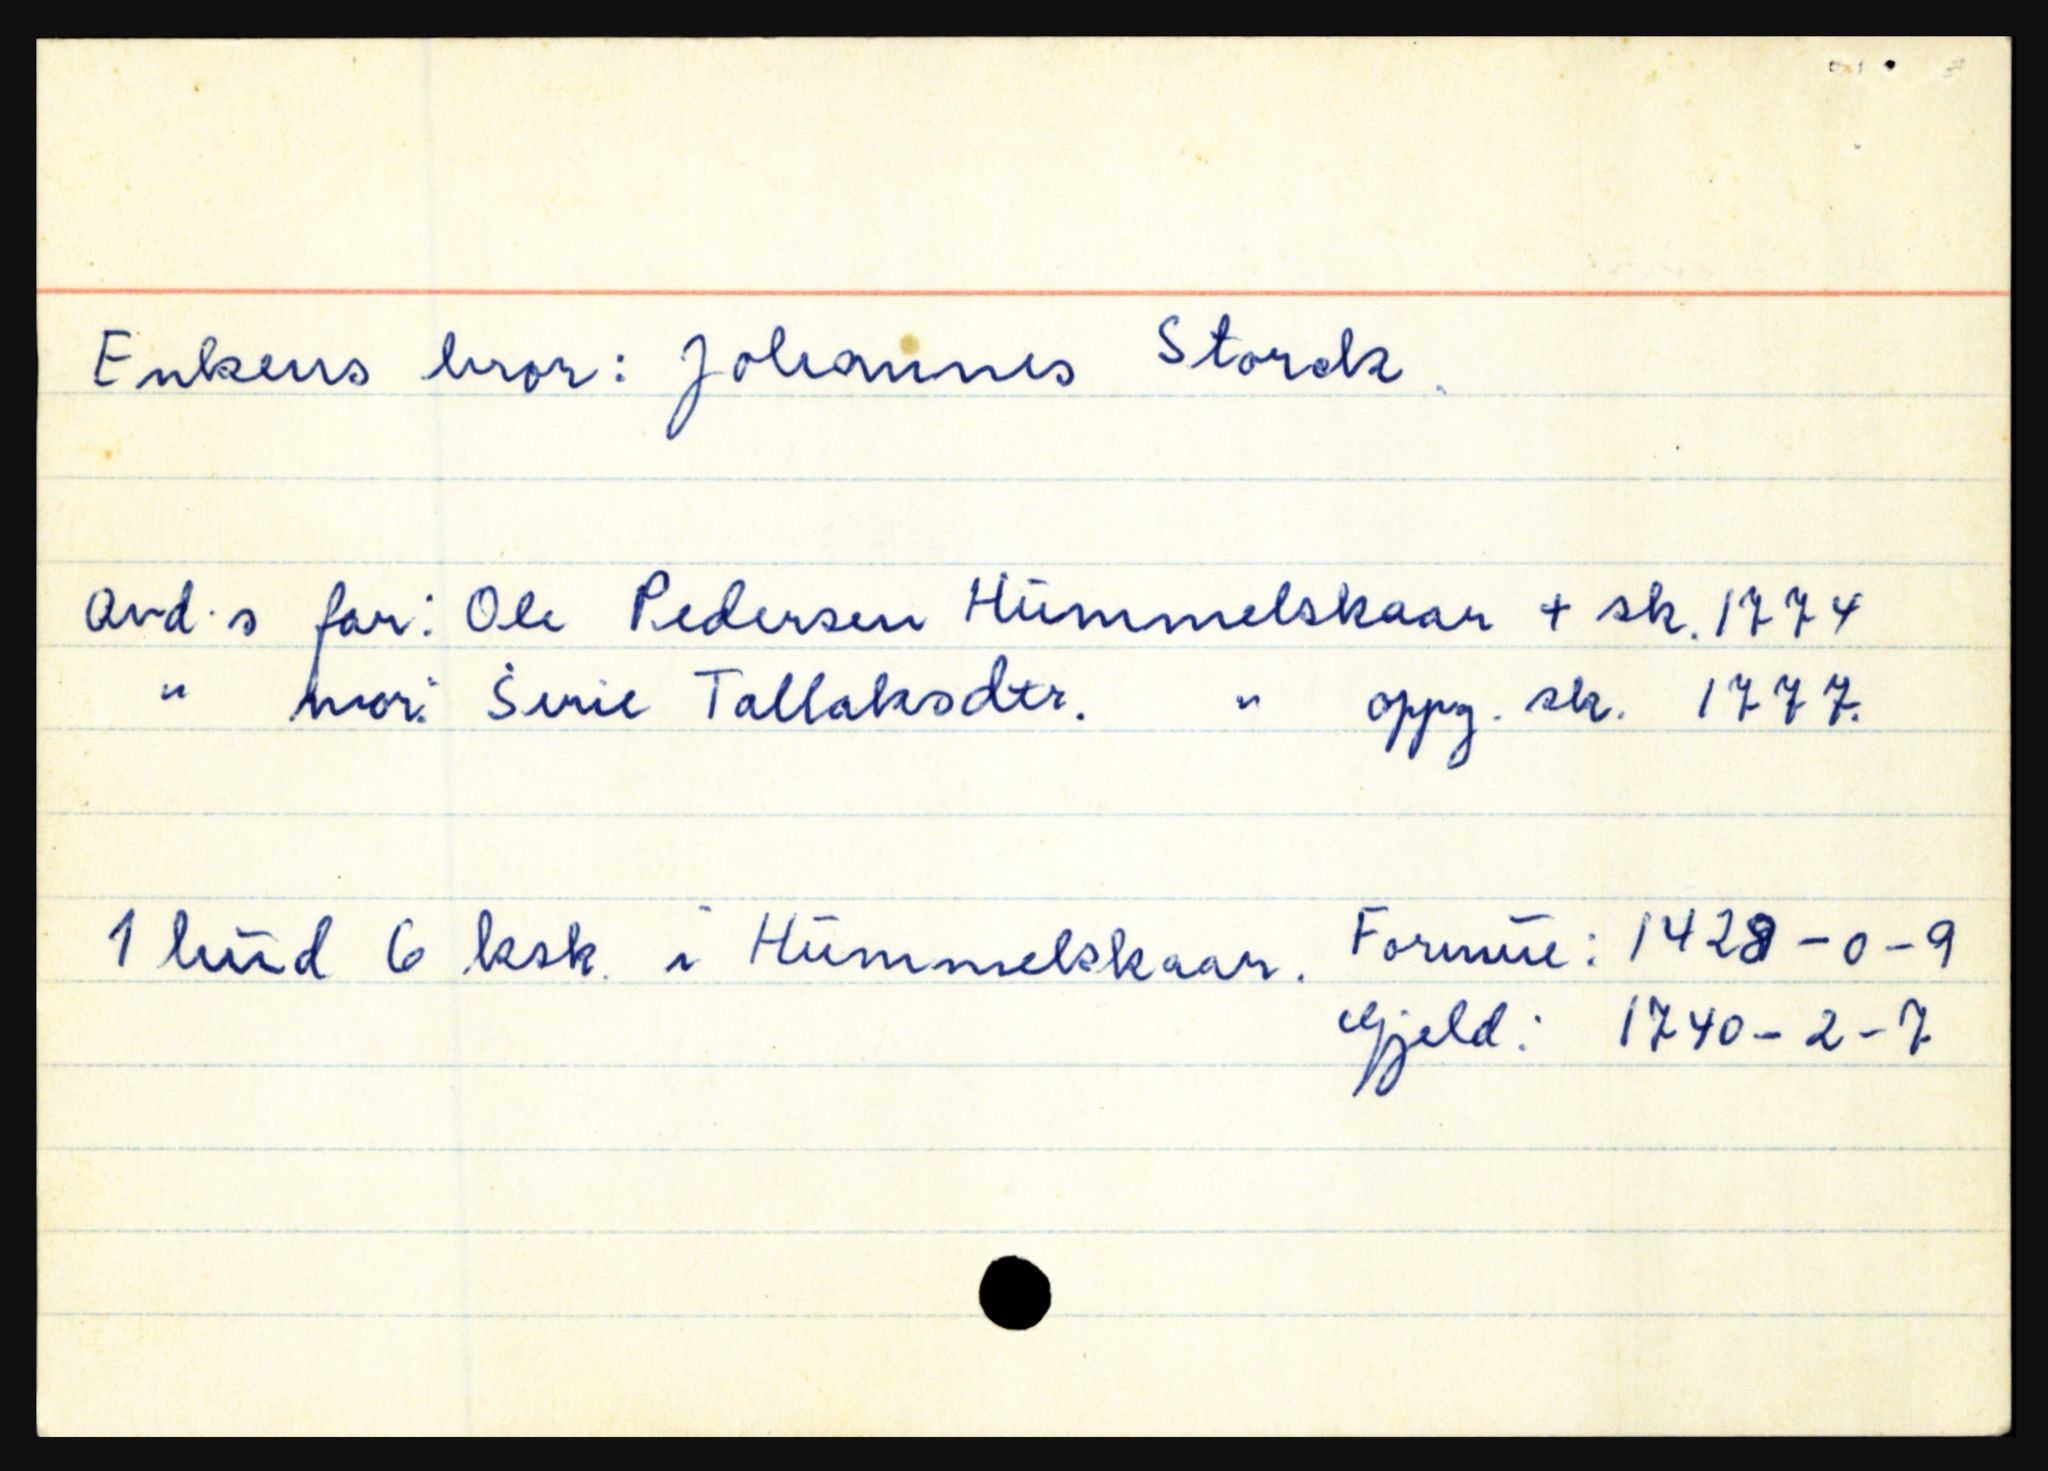 Enkens bror: Johannes Storck.
Avd.s far: Ole Pedersen Hummelskaar + sk. 1774
" mor: Sirie Tallaksdtr. " oppg. sk. 1777.
1 hud 6 ksk. i Hummelskaar. Formue: 1428-0-9
Gjeld: 1740-2-7